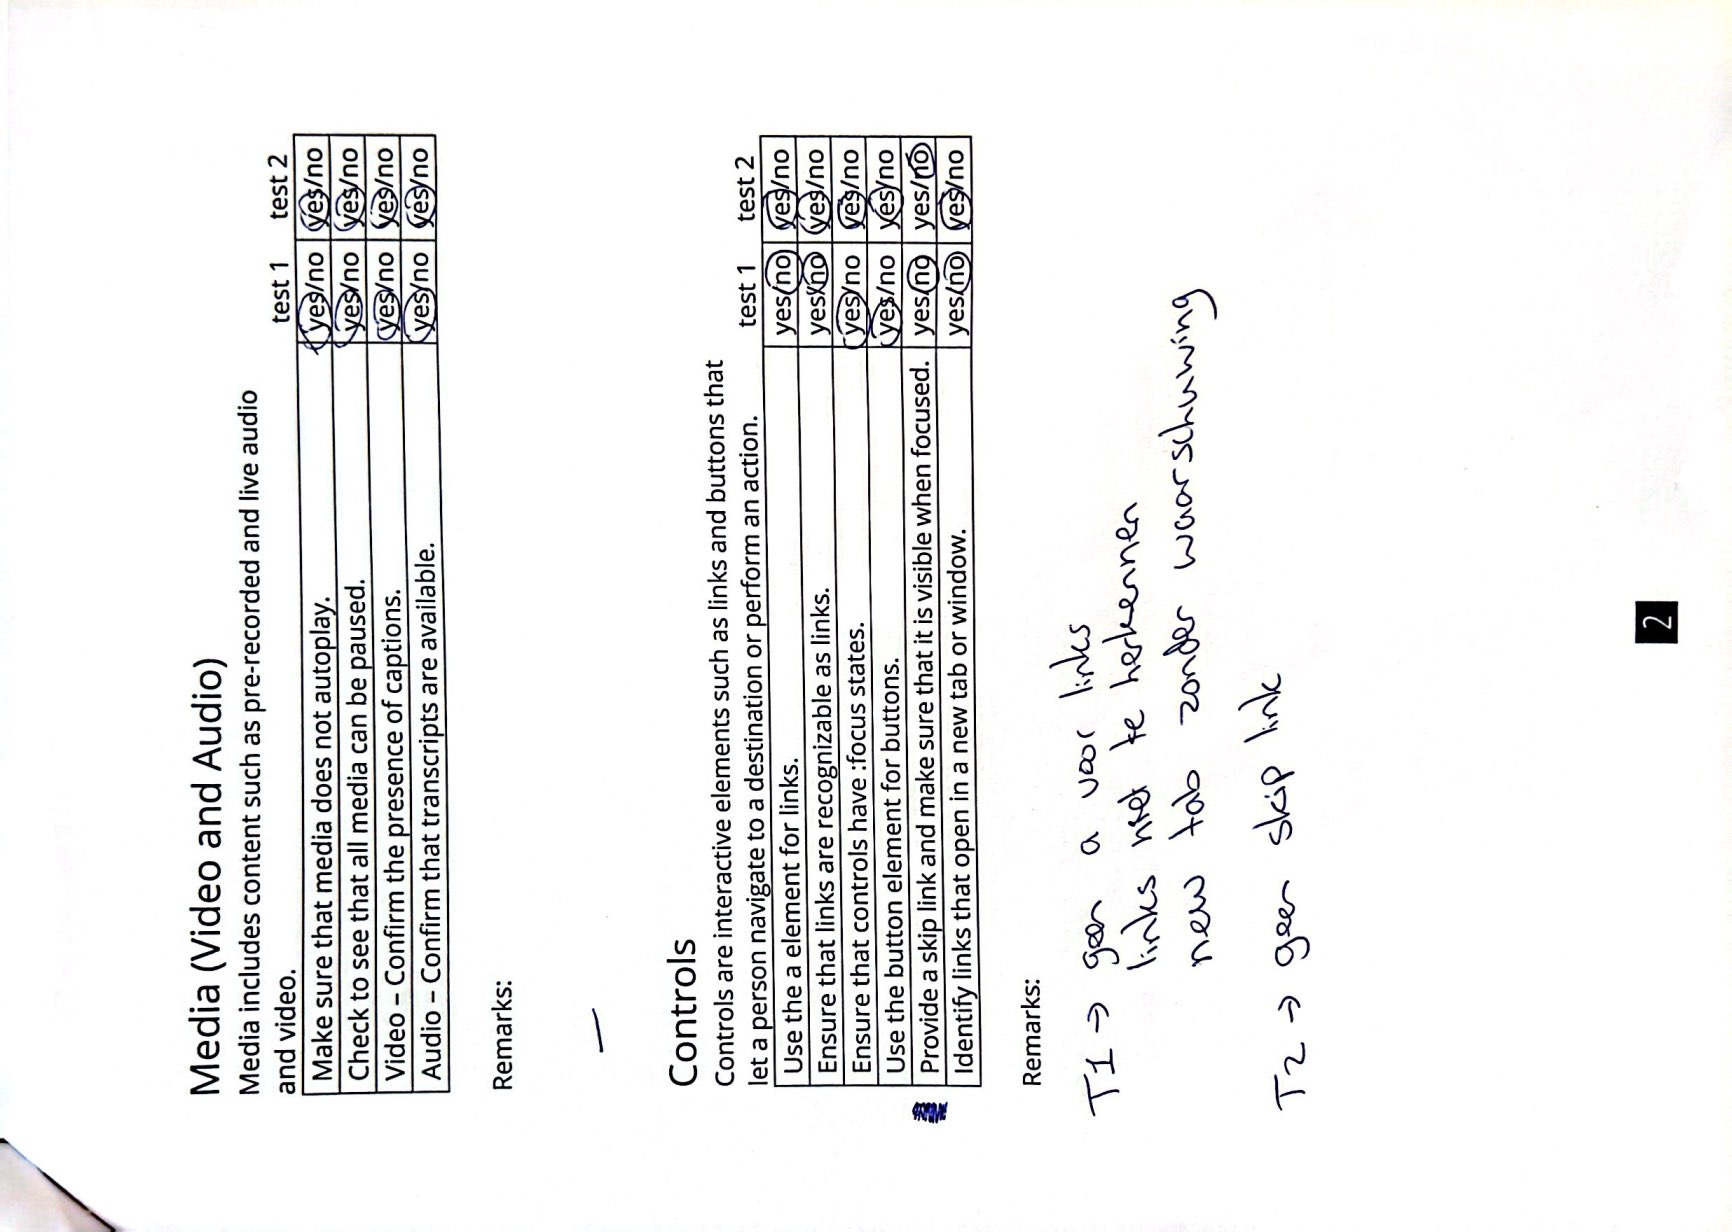 Media (Video and Audio)
Media includes content such as pre-recorded and live audio
and video. test 1 test 2
Make sure that media does not autoplay. yes/no yes/no
Check to see that all media can be paused. yes/no yes/no
Video – Confirm the presence of captions. yes/no yes/no
Audio – Confirm that transcripts are available. yes/no yes/no
Remarks:
—
Controls
Controls are interactive elements such as links and buttons that
let a person navigate to a destination or perform an action. test 1 test 2
Use the a element for links. yes/no yes/no
Ensure that links are recognizable as links. yes/no yes/no
Ensure that controls have :focus states. yes/no yes/no
Use the button element for buttons. yes/no yes/no
Provide a skip link and make sure that it is visible when focused. yes/no yes/no
Identify links that open in a new tab or window. yes/no yes/no
Remarks:
T1 → geen a voor links
links niet te herkennen
new tab zonder waarschuwing
T2 → geen skip link
2